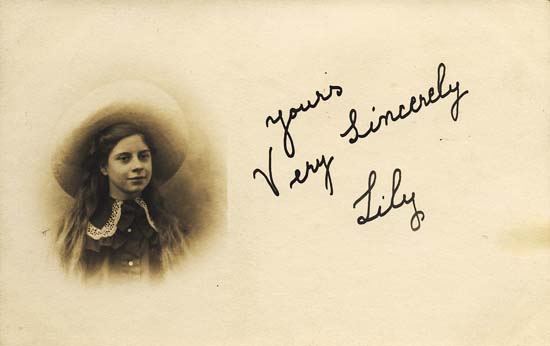 yours
Very Sincerely
Lily